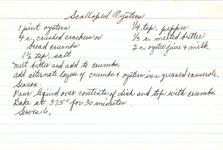 Scalloped Oysters
1 pint oysters 1/4 tsp. pepper
4 c. crushed crackers or 1/2 c. melted butter
bread crumbs 2 c. oyster juice & milk
1 1/2 tsp. salt
Melt butter and add to crumbs.
Add alternate layers of crumbs & oysters in a greased casserole.
Season.
Pour liquid over contents of dish and top with crumbs.
Bake at 375° for 30 minutes.
Serves 6.